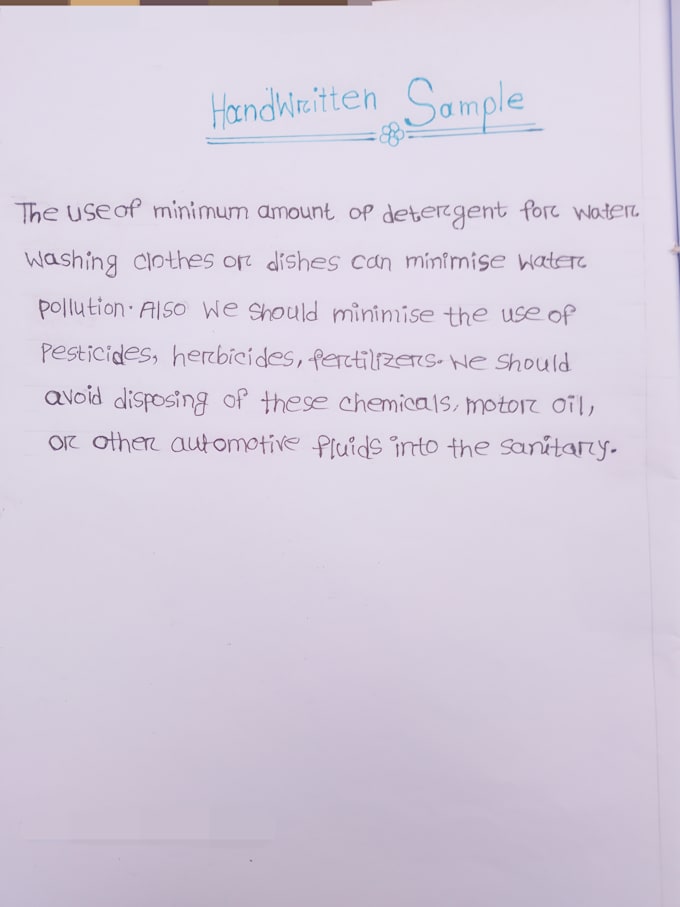 HandWritten Sample
The use of minimum amount of detergent for water
washing clothes or dishes can minimise water
pollution. Also we should minimise the use of
Pesticides, herbicides, fertilizers. We should
avoid disposing of these chemicals, motor oil,
or other automotive fluids into the sanitary.